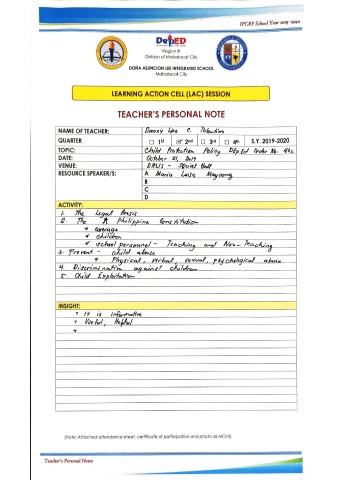 IPCRF School Year 2019 -2020
DepED
Region III
Division of Mabalacat City
DOÑA ASUNCION LEE INTEGRATED SCHOOL
Mabalacat City
LEARNING ACTION CELL (LAC) SESSION
TEACHER'S PERSONAL NOTE
NAME OF TEACHER: Danny Lyne C. Tolentino
QUARTER 1st 2nd 3rd 4th S.Y. 2019-2020
TOPIC: Child Protection Policy DepEd Order No. 40 s.
DATE: October 01, 2019
VENUE: DALIS - Social Hall
RESOURCE SPEAKER/S: A Maria Luisa
B
C
D
ACTIVITY:
1. The Legal Basis
2. The Philippine Constitution
* coverage
* children
* school personnel - Teaching and Non-Teaching
3. Prevent - child abuse
* Physical, verbal, sexual, psychological abuse
4. Discrimination against children
5. Child Exploitation
INSIGHT:
* It is informative
* Useful, Helpful
*
(Note: Attached attendance sheet; certificate of participation and photo as MOVs)
Teacher's Personal Notes